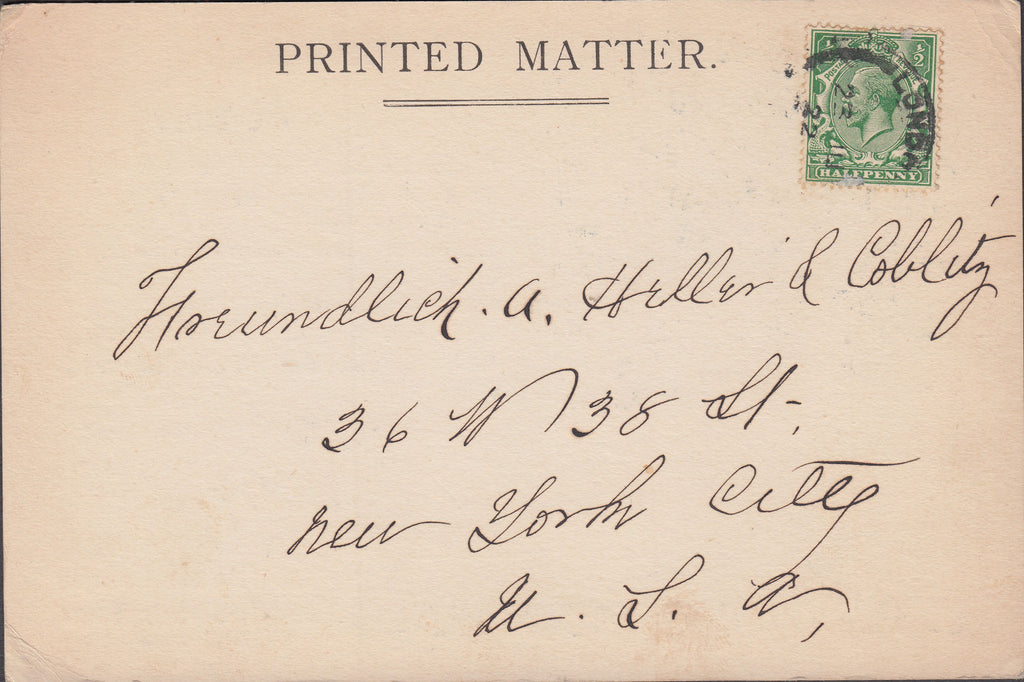 PRINTED MATTER.
½
HALFPENNY
LONDON
22
Freundlich. a. Heller & Coblitz
36 W 38 St.
new York City
U. S. A,